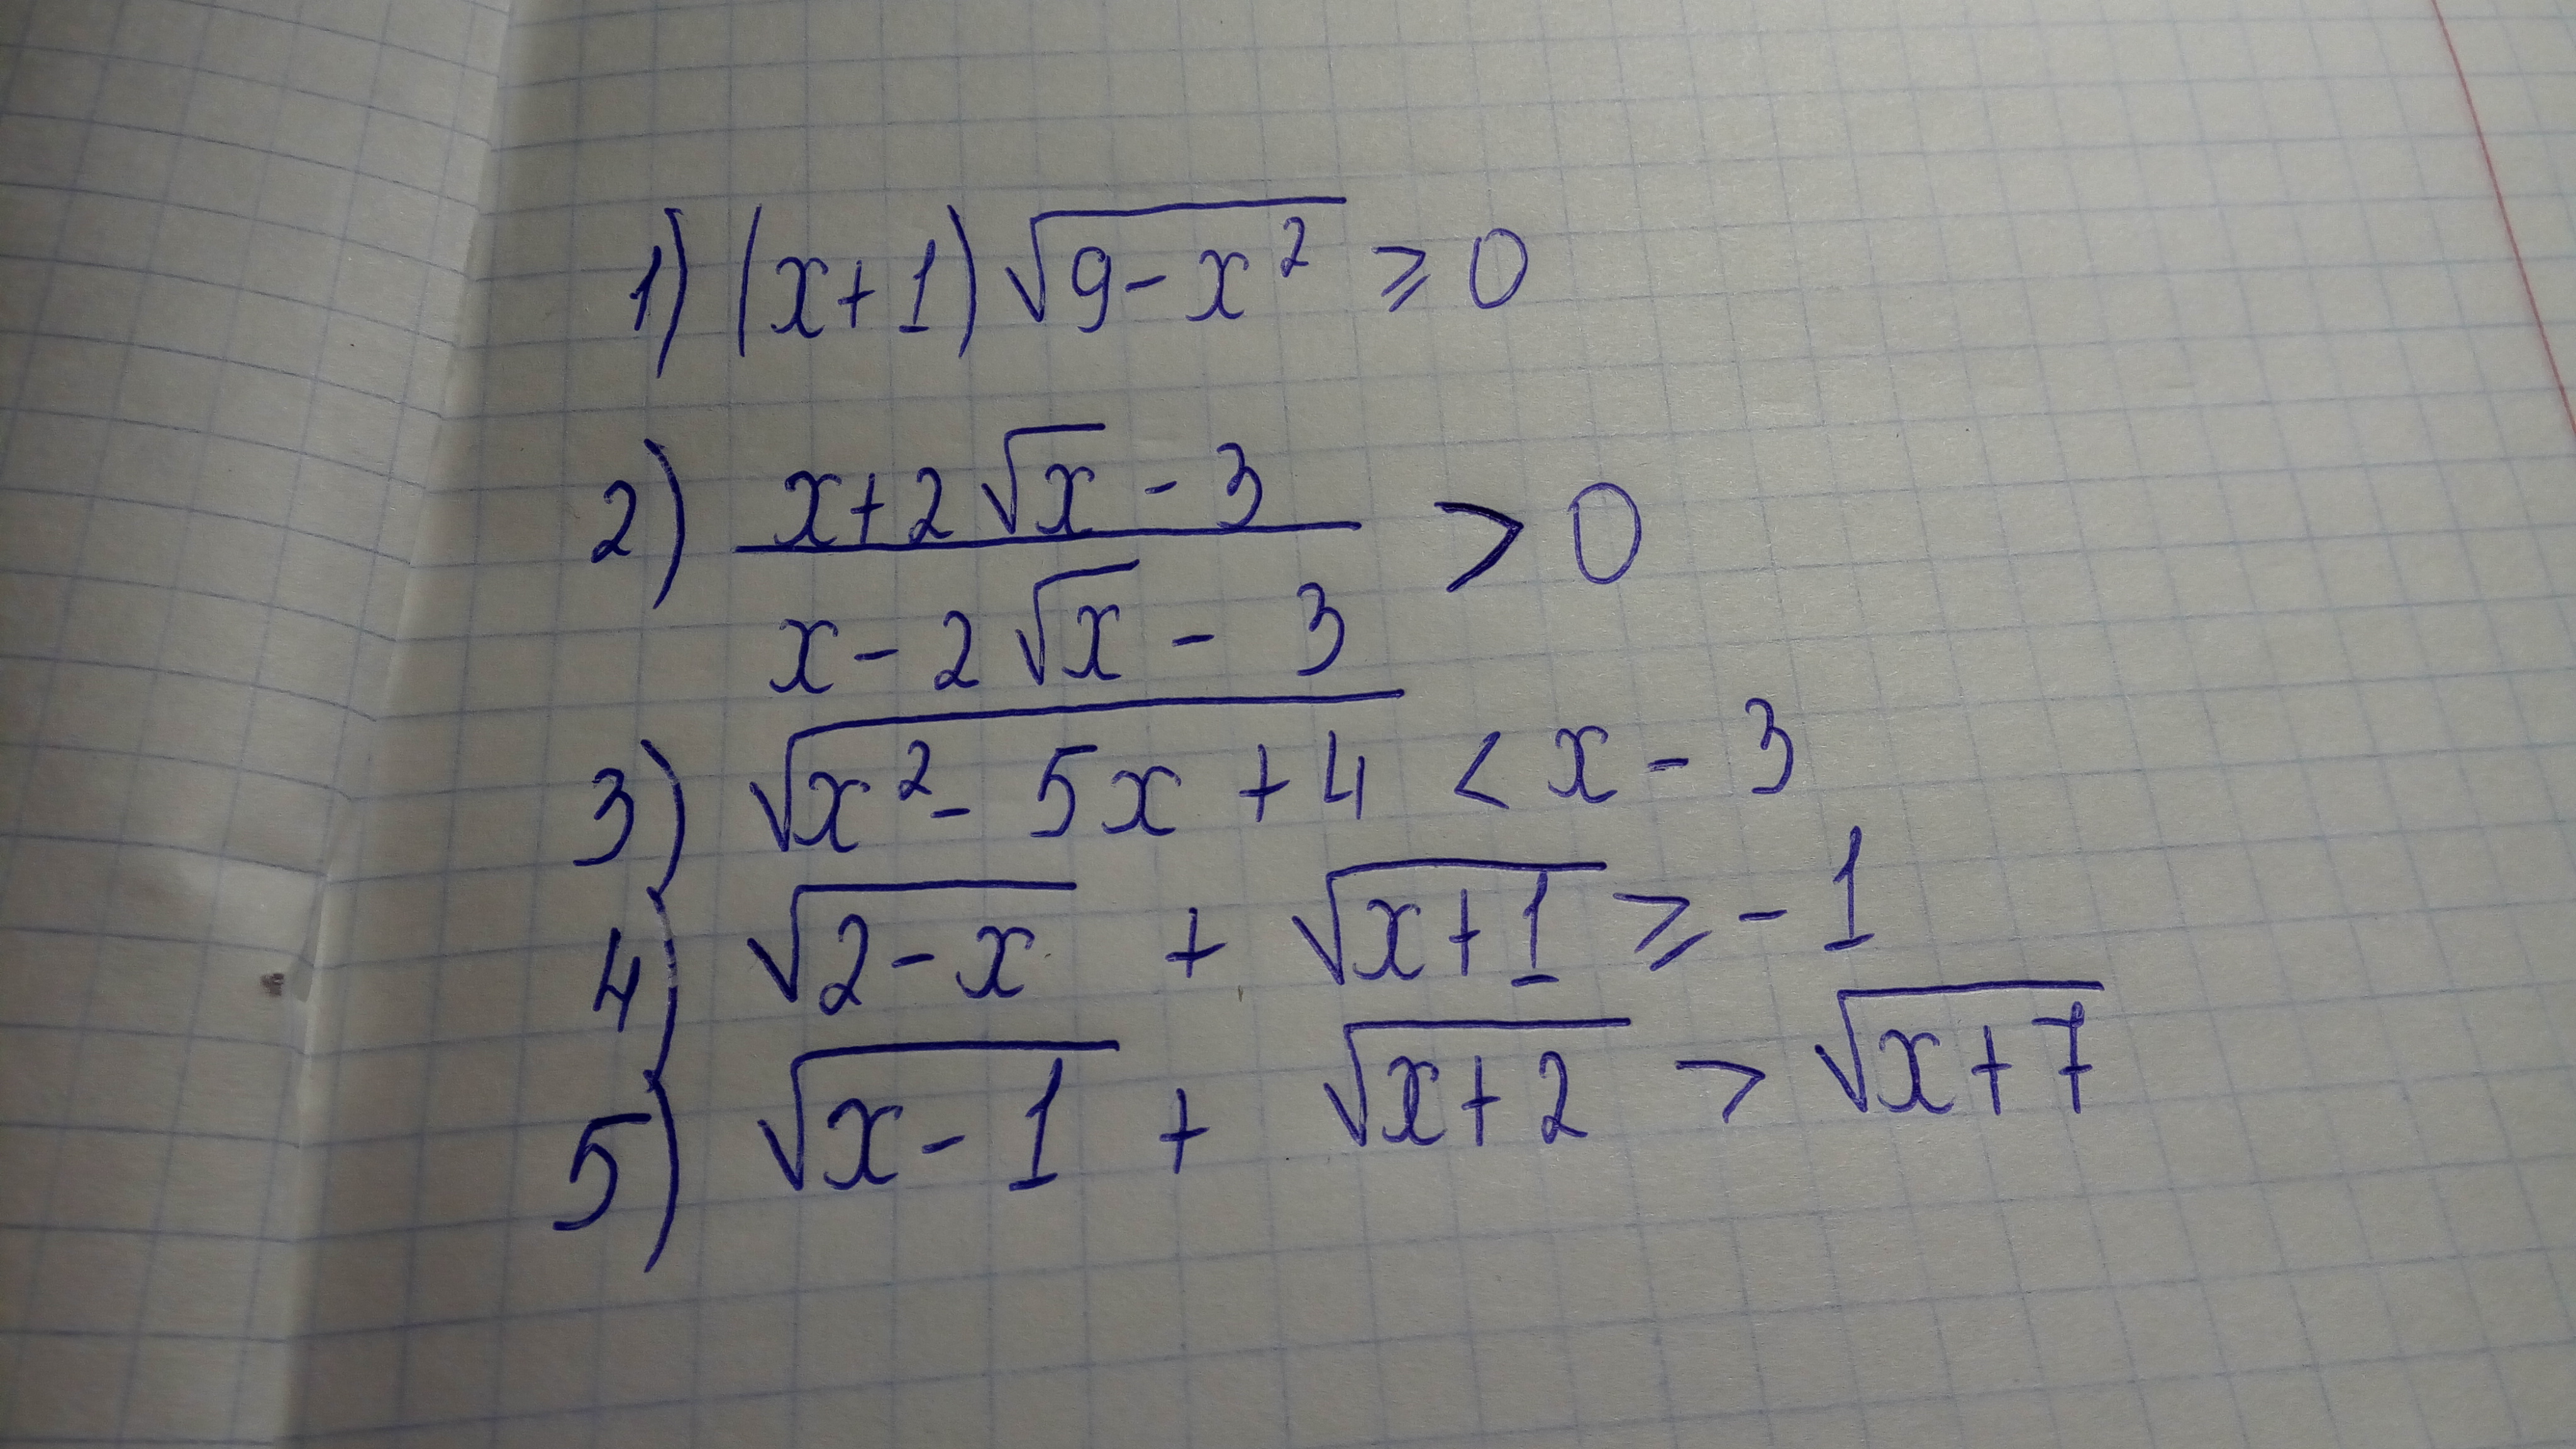 1) (x+1)√(9-x²) ⩾ 0
2) (x+2√x - 3)/(x-2√x - 3) > 0
3) √(x²-5x+4) < x-3
4) √(2-x) + √(x+1) ⩾ -1
5) √(x-1) + √(x+2) > √(x+7)